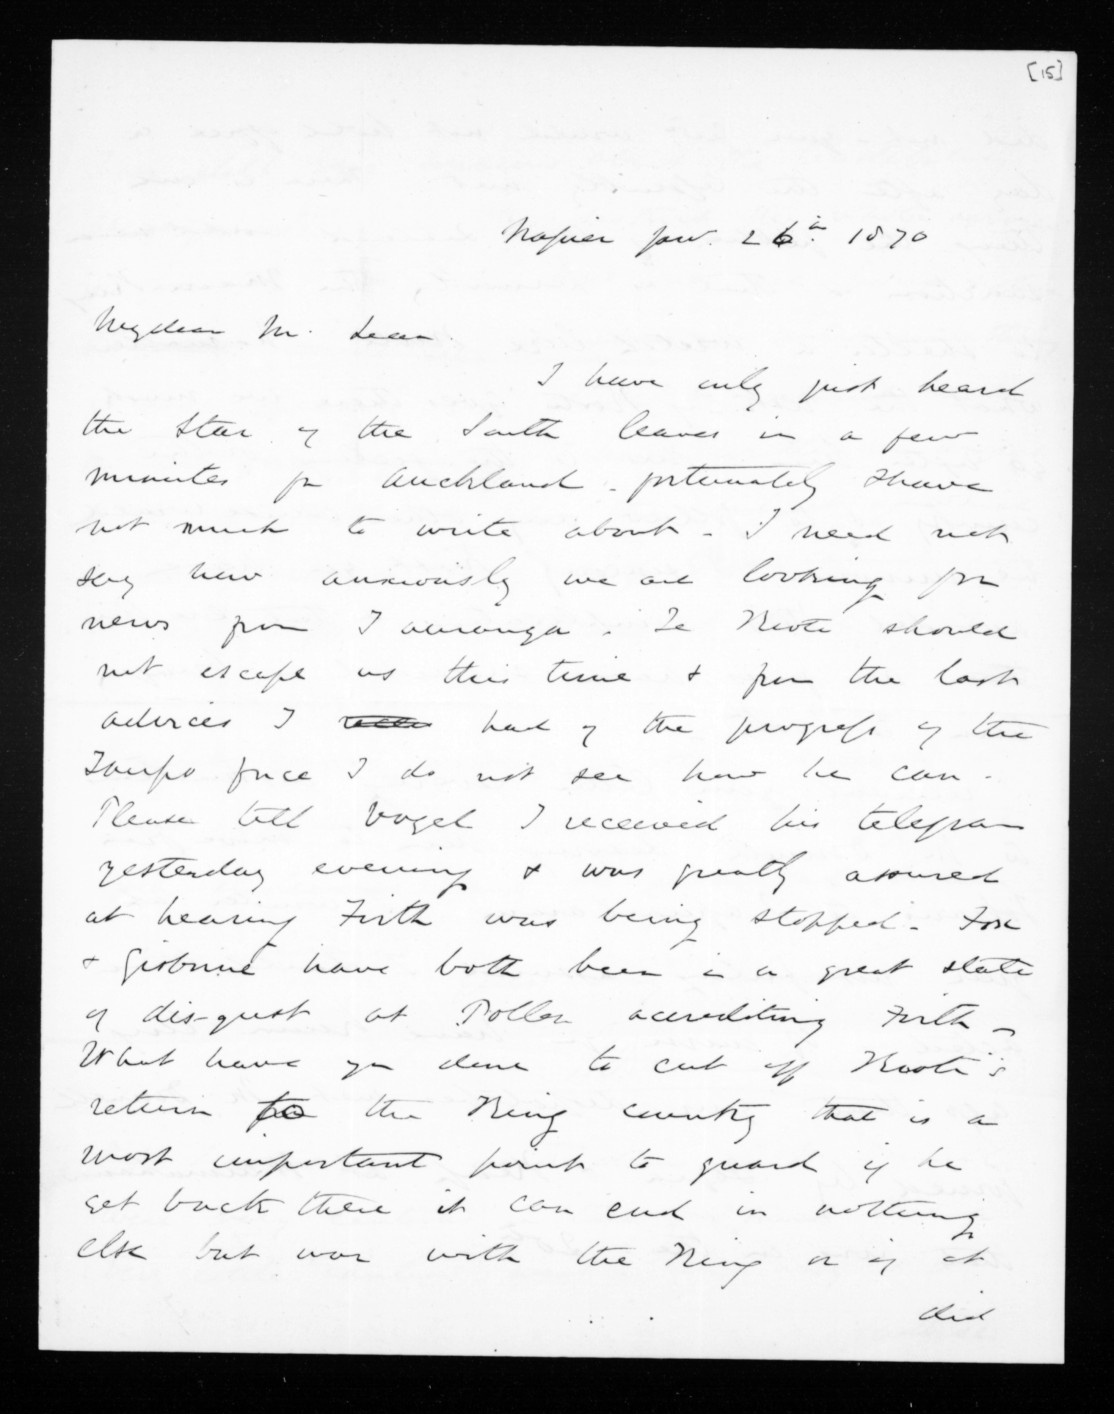 [15]
Napier Jan. 26th. 1870
My dear Mr. Lean.
I have only just heard
the Star of the South leaves in a few
minutes for Auckland - fortunately I have
not much to write about - I need not
say how anxiously we are looking for
news from Tauranga. Te Kooti should
not escape us this time & from the last
advices I had of the progress of the
Taupo force I do not see how he can -
Please tell Vogel I received his telegram
yesterday evening & was greatly assured
at hearing Firth was being stopped - Fox
& Gisborne have both been in a great state
of dis-gust at Pollen accrediting Firth -
What have you done to cut off Kooti's
return to the King country that is a
most important point to guard if he
get back there it can end in nothing
else but war with the King or if it
did